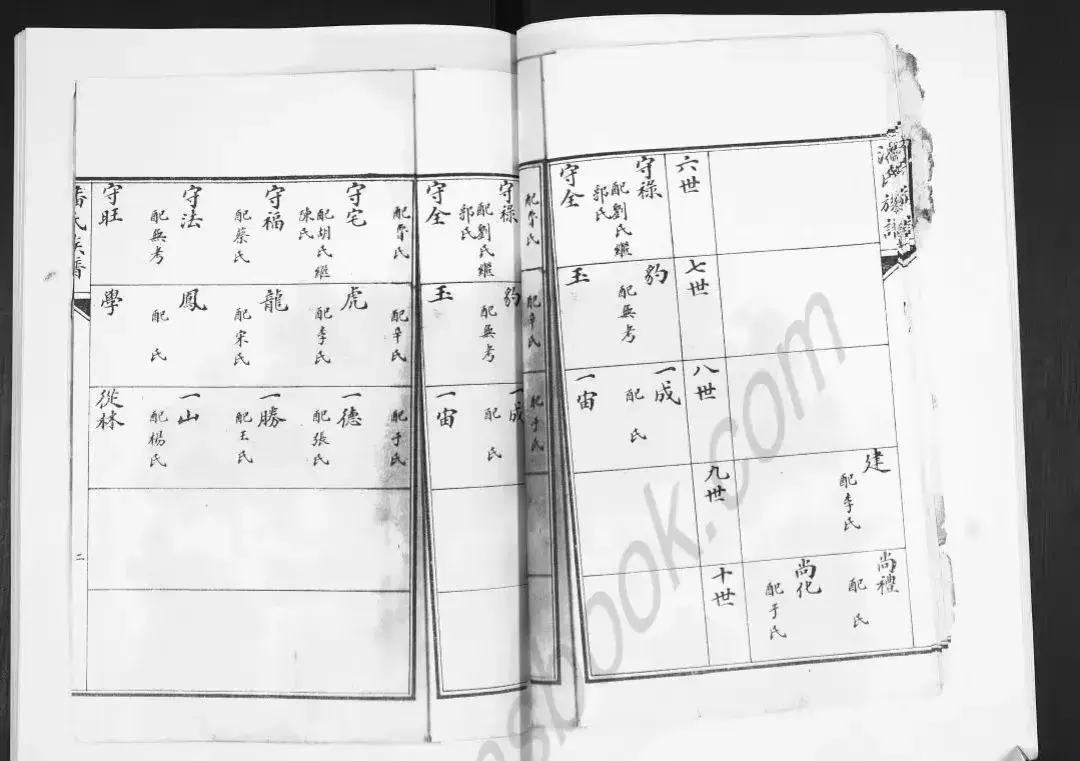 潘氏族譜
建
配李氏
尚禮
配 氏
尚化
配于氏
六世
七世
八世
九世
十世
守祿
配劉氏繼
郭氏
守全
豹
配無考
玉
一成
配 氏
一宙
配辛氏
配于氏
守祿
配劉氏繼
郭氏
守全
豹
配無考
玉
一成
配 氏
一宙
守宅
配胡氏繼
陳氏
守福
配蔡氏
守法
配無考
守旺
配辛氏
虎
配李氏
龍
配宋氏
鳳
配 氏
學
配于氏
一德
配張氏
一勝
配王氏
一山
配楊氏
從林
潘氏族譜
二
book.com